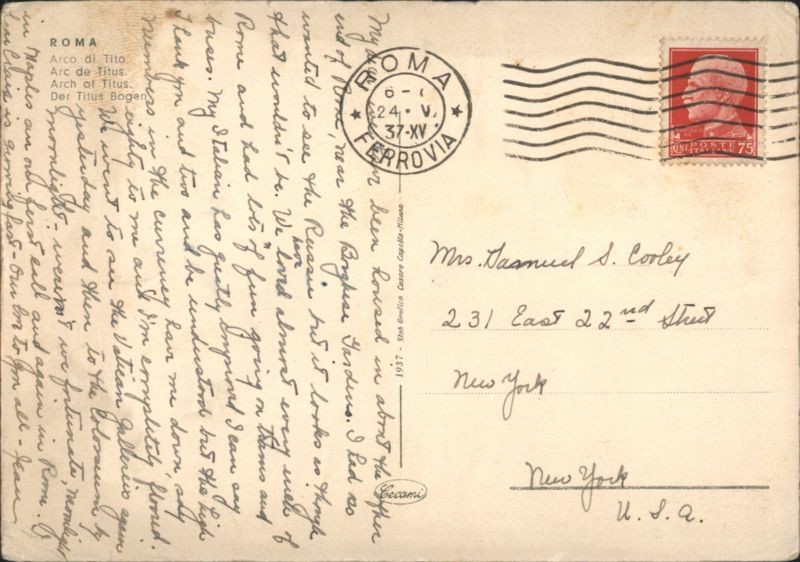 ROMA
Arco di Tito.
Arc de Titus.
Arch of Titus.
Der Titus Bogen
My dear been housed in about the
end of Rome, near the Borghese Gardens. I had so
wanted to see the Russie but it looks as though
that wouldn't be. We have loved almost every inch of
Rome and had lots of fun going on trams and
buses. My Italian has greatly improved I can say
Thank you and two and be understood but the high
numbers in the currency have me down, say
eighty to me and I'm completely floored.
We went to see the Vatican Galleries again
yesterday and then to the Colosseum by
moonlight - weren't we fortunate, moonlight
in Naples on our first sail and again in Rome.
is growing fast - Our love to you all - Jean
ROMA
6 -
24 · V.
37·XV
FERROVIA
POSTE
75
1937 - Stab Grafico Cesare Capello - Milano
Cecami
Mrs. Samuel S. Cooley
231 East 22nd Street
New York
New York
U.S.A.